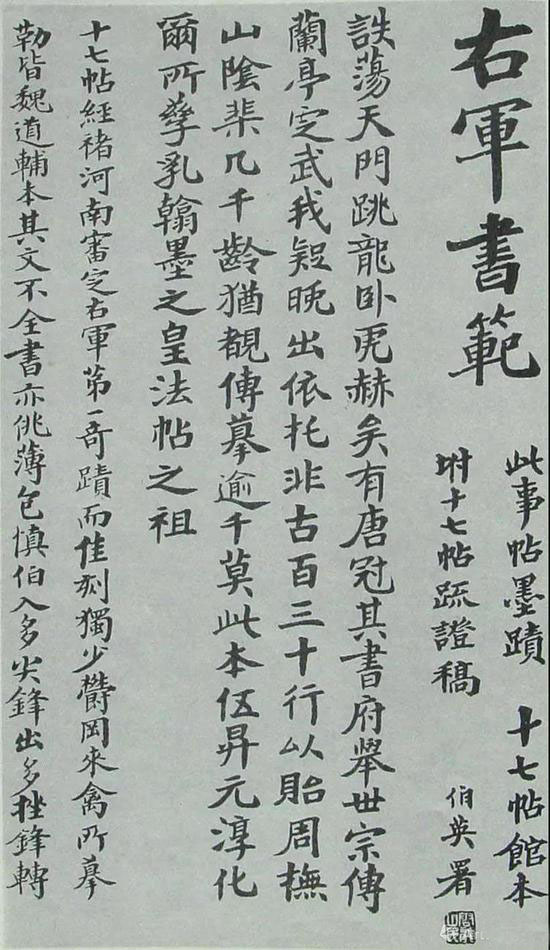 右軍書範
此事帖墨蹟 十七帖館本
坿十七帖疏證稿 伯英署
詄蕩天門跳龍卧虎赫矣有唐冠其書府舉世宗傳
蘭亭定武我疑晚出依托非古百三十行以貽周撫
山陰棐几千齡猶覩傳摹逾千莫此本伍昇元淳化
爾所孳乳翰墨之皇法帖之祖
十七帖經褚河南審定右軍第一奇蹟而佳刻獨少欝岡來禽所摹
勒皆魏道輔本其文不全書亦佻薄包慎伯入多尖鋒出多挫鋒轉